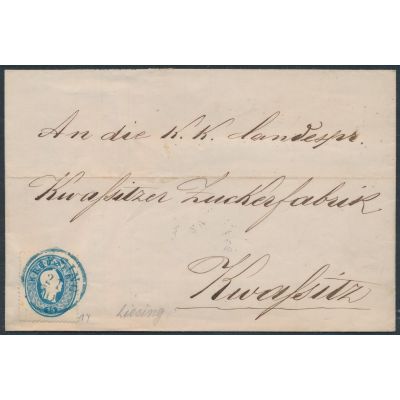 An die K. K. landespr.
Kwaßitzer Zuckerfabrik
Kwaßitz
15
Liesing